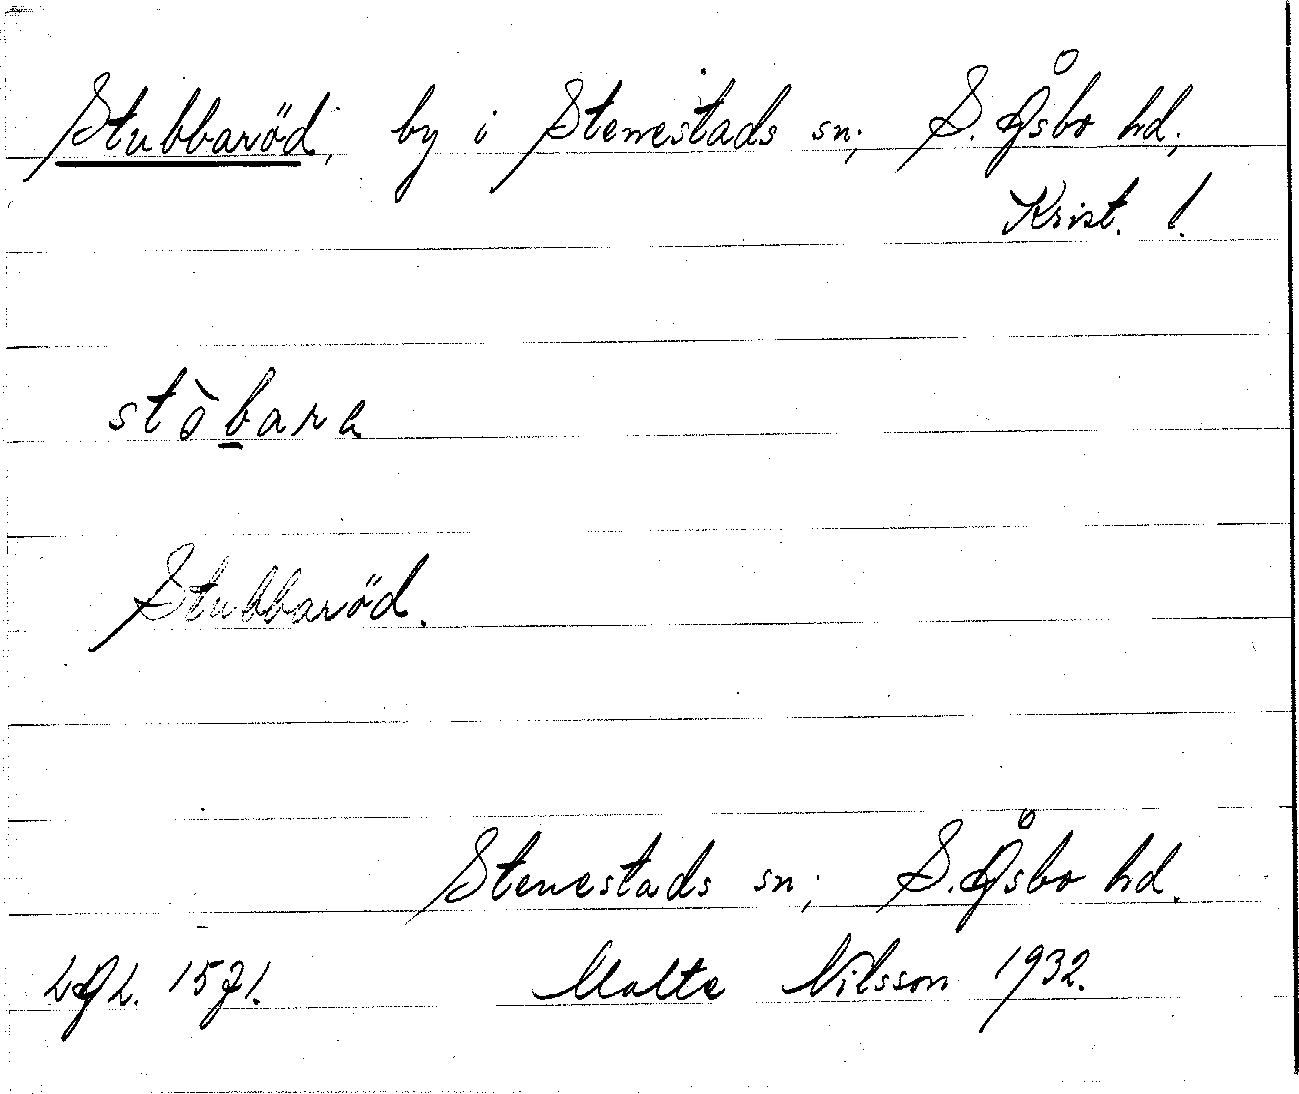 Stubbaröd, by i Stenestads sn; S. Åsbo hd;
Krist. l.
stòbara
Stubbaröd.
Stenestads sn; S. Åsbo hd.
Malte Nilsson 1932.